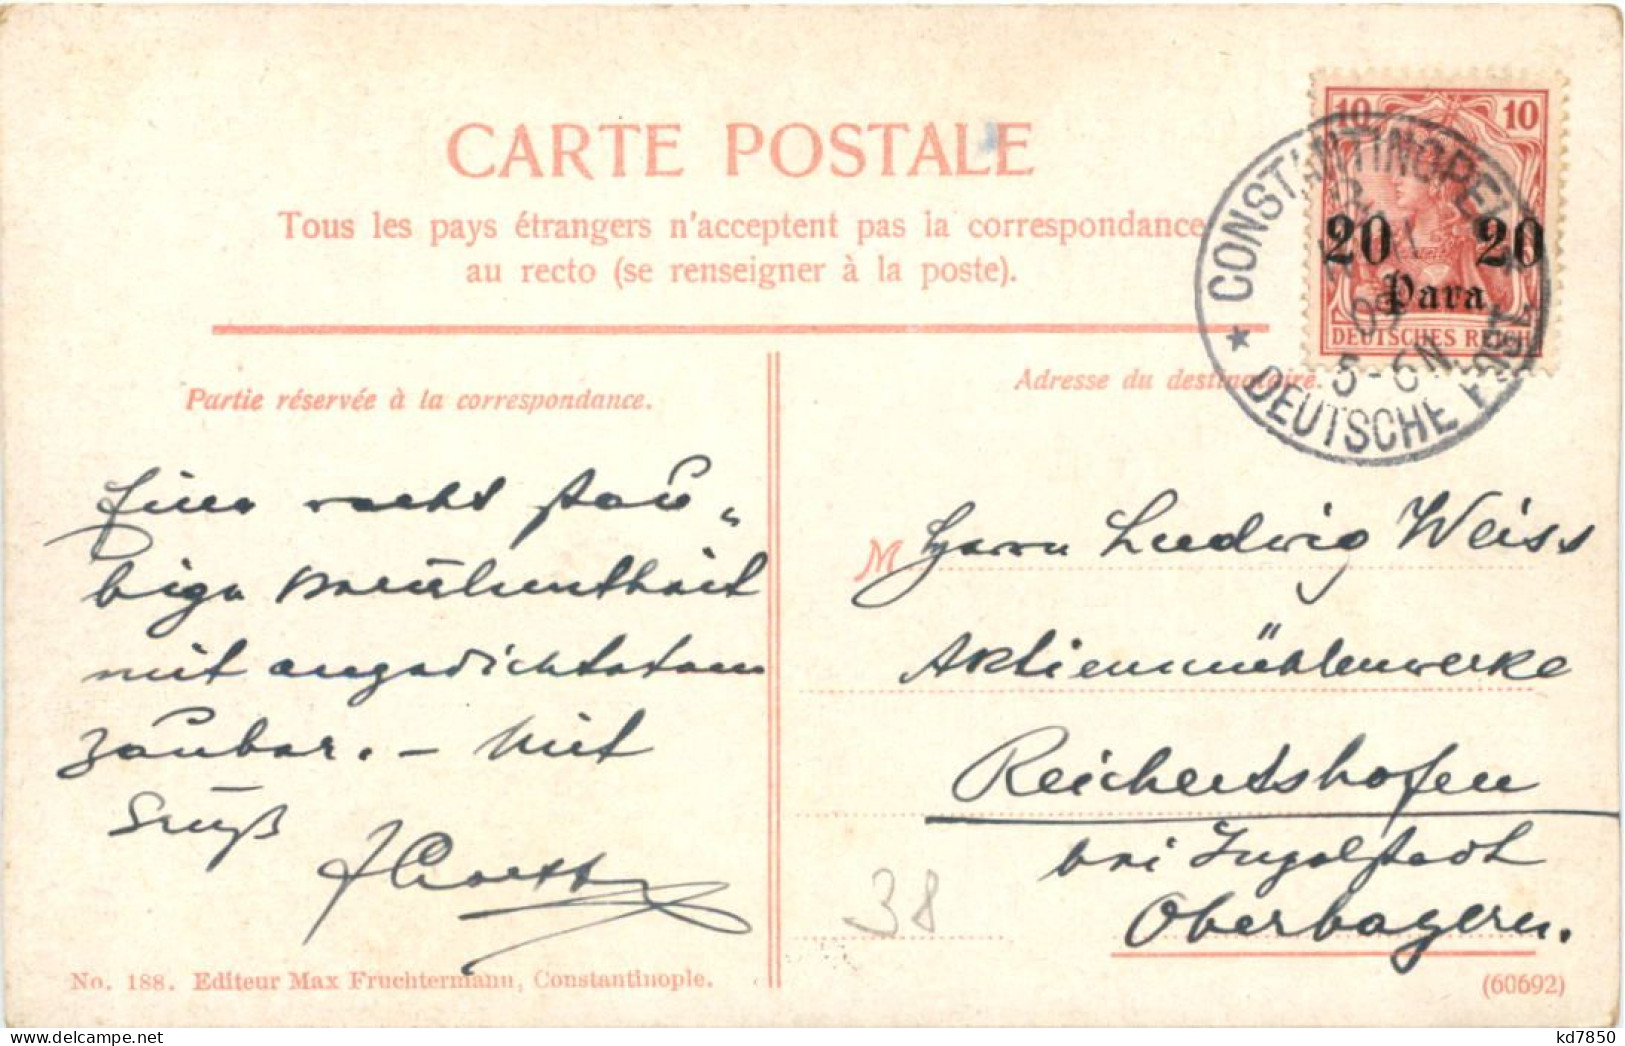 CARTE POSTALE
Tous les pays étrangers n'acceptent pas la correspondance
au recto (se renseigner à la poste).
10 10
20 20
Para
DEUTSCHES REICH
CONSTANTINOPEL 1
09
5-6 N.
★ DEUTSCHE POST
Partie réservée à la correspondance.
Einer recht stau-
bige
mit angedichtetem
Zauber. – Mit
Gruß
Adresse du destinataire.
M Herrn Ludwig Weiss
Aktienmühlenwerke
Reichertshofen
bei Ingolstadt
Oberbayern.
38
No. 188. Editeur Max Fruchtermann, Constantinople.
(60692)
delcampe.net
kd7850